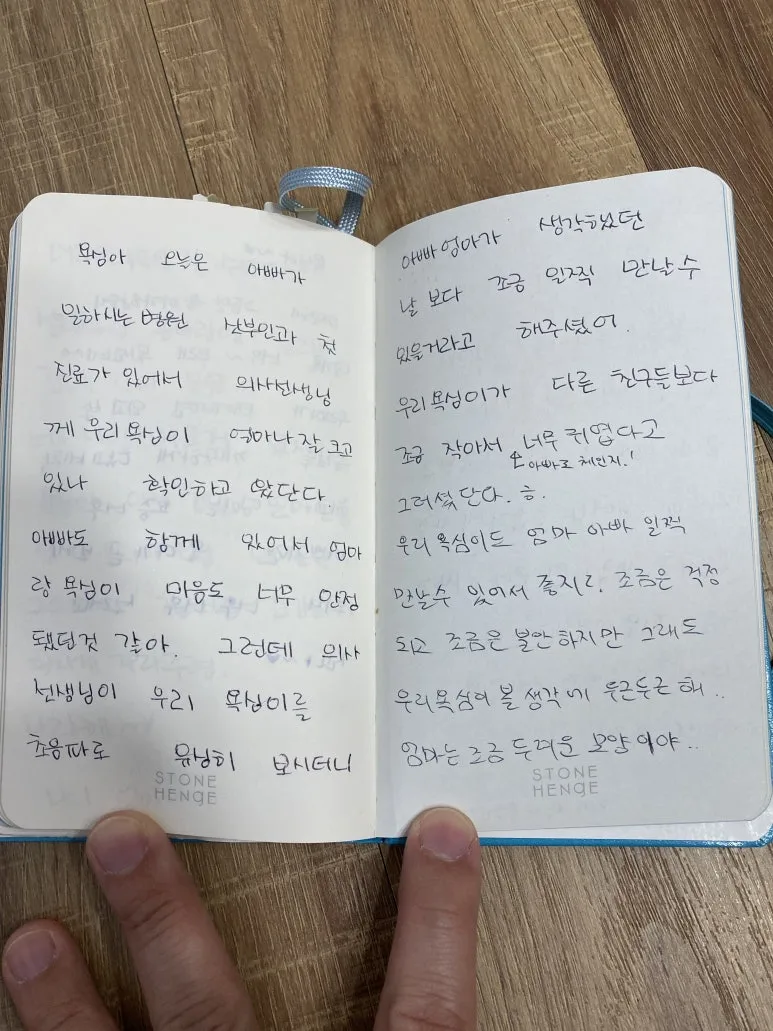 욕심아 오늘은 아빠가
일하시는 병원 산부인과 첫
진료가 있어서 의사선생님
께 우리 욕심이 얼마나 잘 크고
있나 확인하고 왔단다.
아빠도 함께 있어서 엄마
랑 욕심이 마음도 너무 안정
됐던것 같아. 그런데 의사
선생님이 우리 욕심이를
초음파로 유심히 보시더니
STONE
HENGE
아빠엄마가 생각했던
날 보다 조금 일찍 만날수
있을거라고 해주셨어.
우리욕심이가 다른 친구들보다
조금 작아서 너무 귀엽다고
아빠로 체인지!
그러셨단다. ㅎ.
우리 욕심이도 엄마 아빠 일찍
만날수 있어서 좋지?. 조금은 걱정
되고 조금은 불안하지만 그래도
우리욕심이 볼 생각에 두근두근 해..
엄마는 조금 두려운 모양이야..
STONE
HENGE